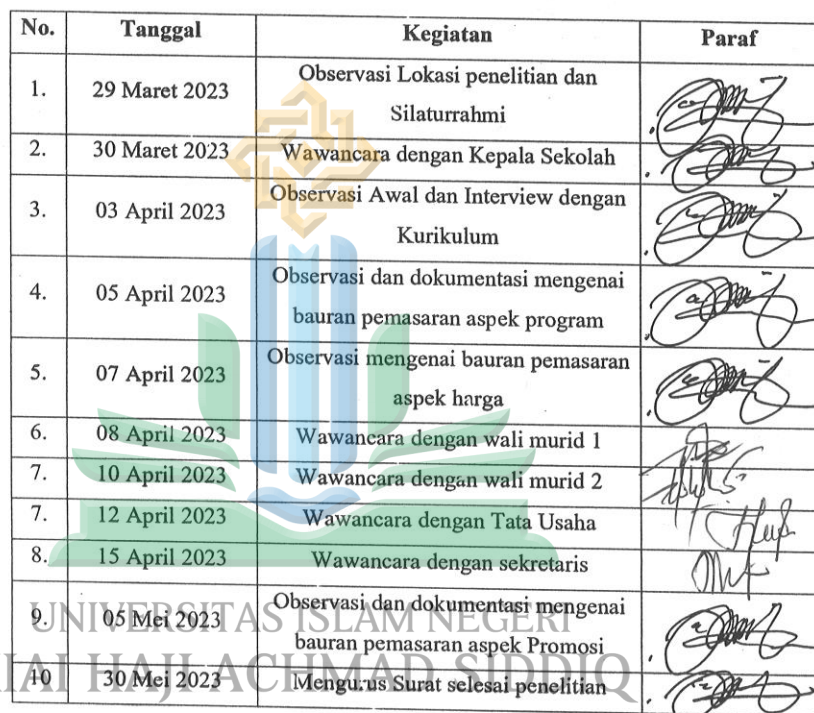 No. Tanggal Kegiatan Paraf
1. 29 Maret 2023 Observasi Lokasi penelitian dan
Silaturrahmi
2. 30 Maret 2023 Wawancara dengan Kepala Sekolah
3. 03 April 2023 Observasi Awal dan Interview dengan
Kurikulum
4. 05 April 2023 Observasi dan dokumentasi mengenai
bauran pemasaran aspek program
5. 07 April 2023 Observasi mengenai bauran pemasaran
aspek harga
6. 08 April 2023 Wawancara dengan wali murid 1
7. 10 April 2023 Wawancara dengan wali murid 2
7. 12 April 2023 Wawancara dengan Tata Usaha
8. 15 April 2023 Wawancara dengan sekretaris
9. 05 Mei 2023 Observasi dan dokumentasi mengenai
bauran pemasaran aspek Promosi
UNIVERSITAS ISLAM NEGERI
10 30 Mei 2023 Mengurus Surat selesai penelitian
IAI HAJI ACHMAD SIDDIQ